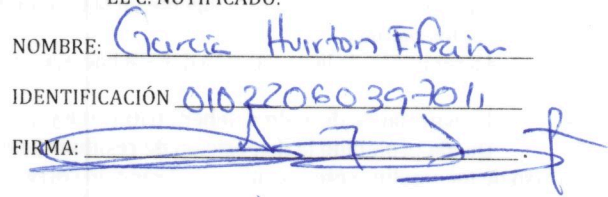 EL C. NOTIFICADO:
NOMBRE: García Huirton Efrain
IDENTIFICACIÓN 0102206039701,
FIRMA: